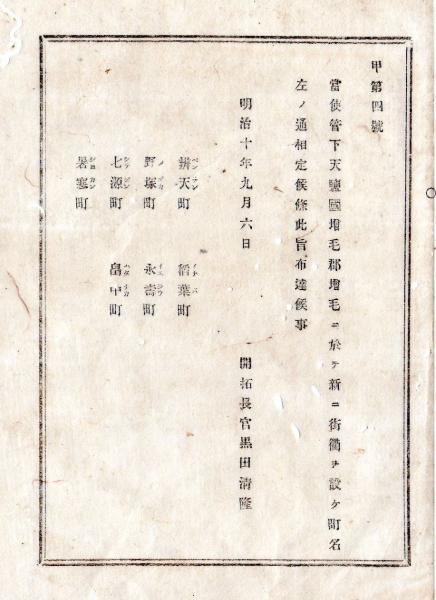 甲第四號
當使管下天鹽國增毛郡增毛ニ於テ新ニ街衢ヲ設ケ町名
左ノ通相定候條此旨布達候事
明治十年九月六日
開拓長官黒田清隆
辨天町 ベンテン
稻葉町 イナバ
野塚町 ノヅカ
永壽町
七源町
畠中町 ハタナカ
暑寒町 シヨカン